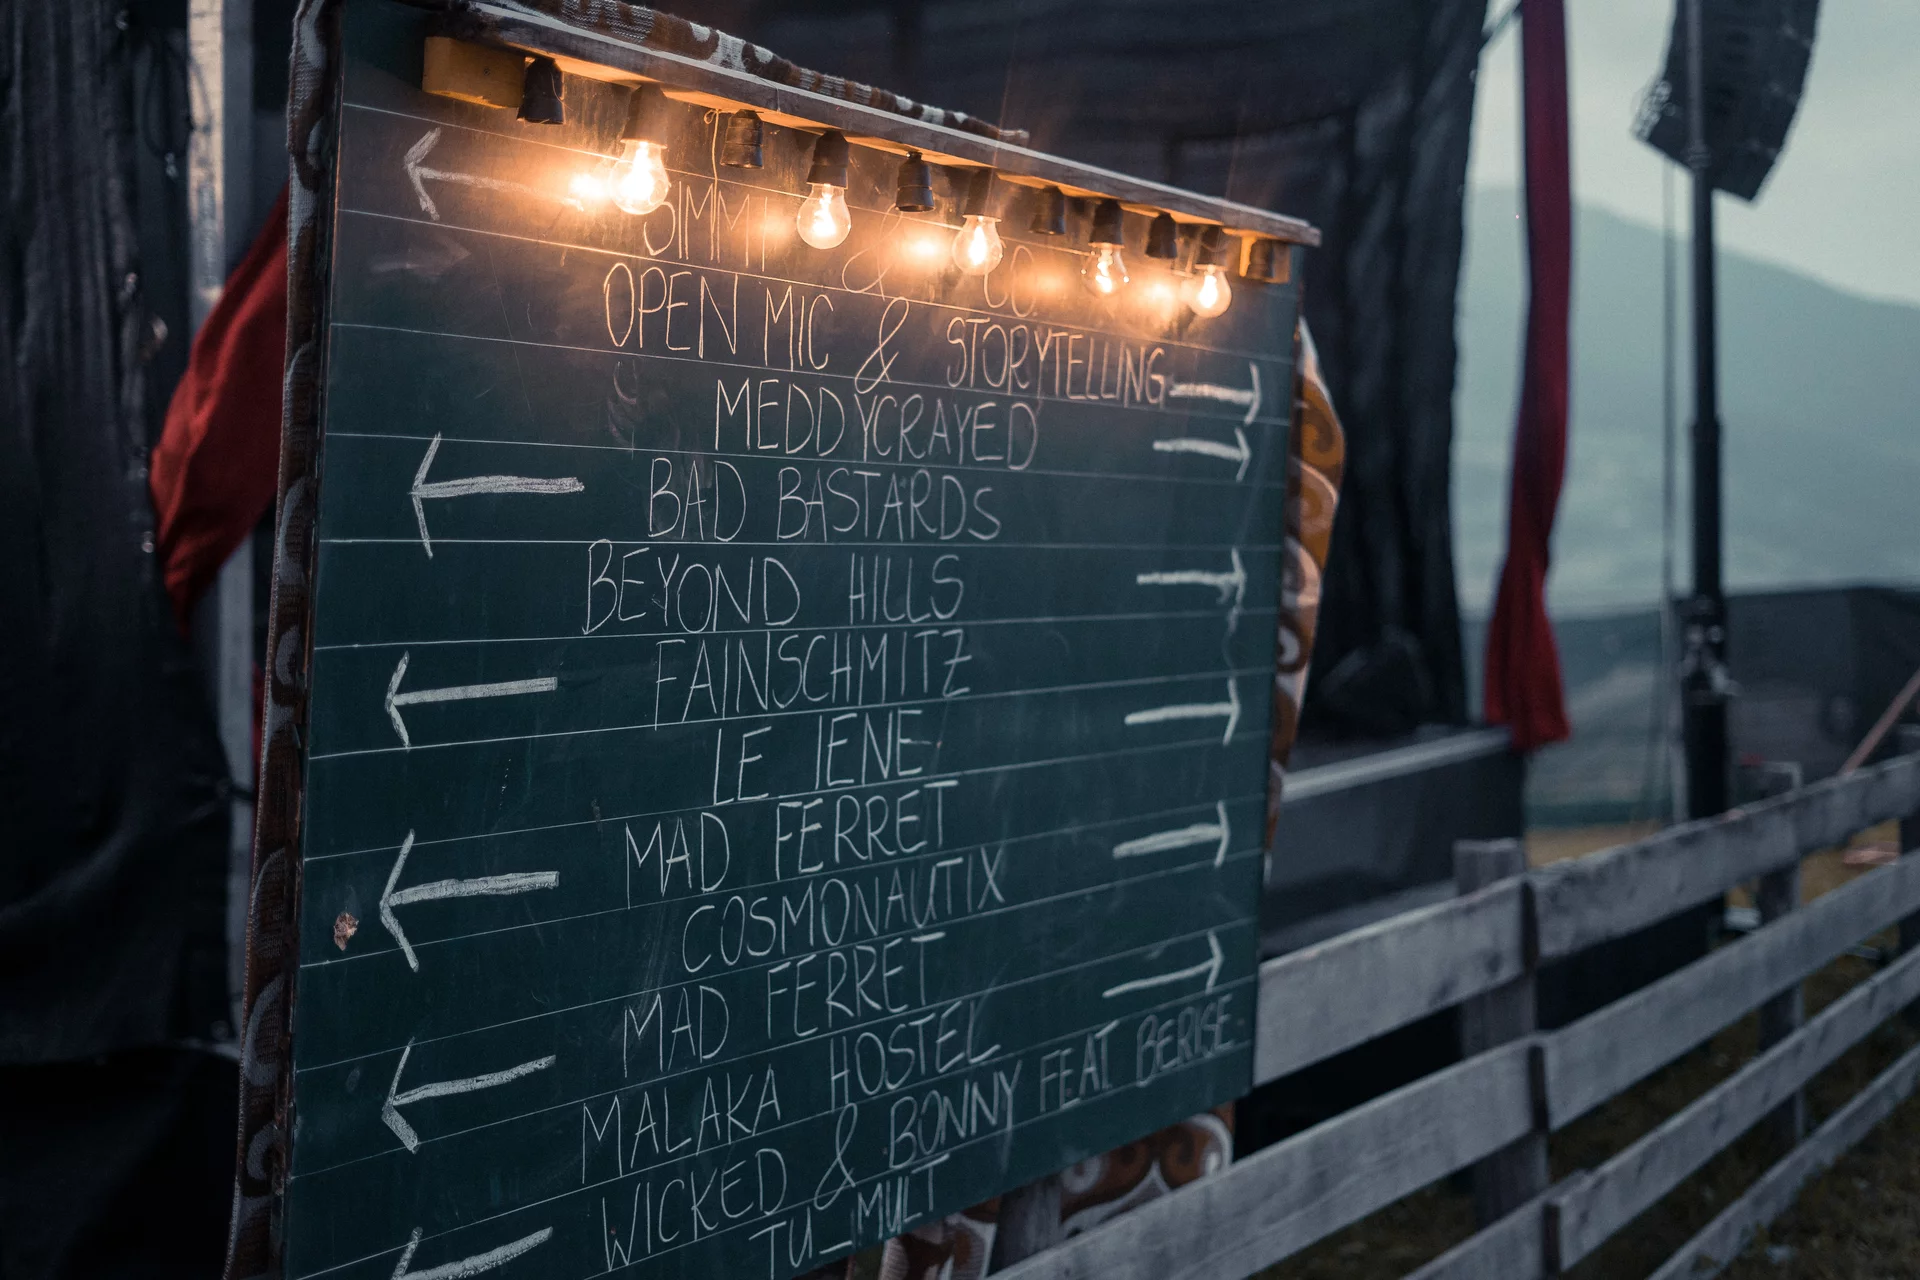 & CO.
OPEN MIC & STORYTELLING
MEDDYCRAYED
BAD BASTARDS
BEYOND HILLS
FAINSCHMITZ
LE IENE
MAD FERRET
COSMONAUTIX
MAD FERRET
MALAKA HOSTEL
WICKED & BONNY FEAT BERISE
TU_MULT